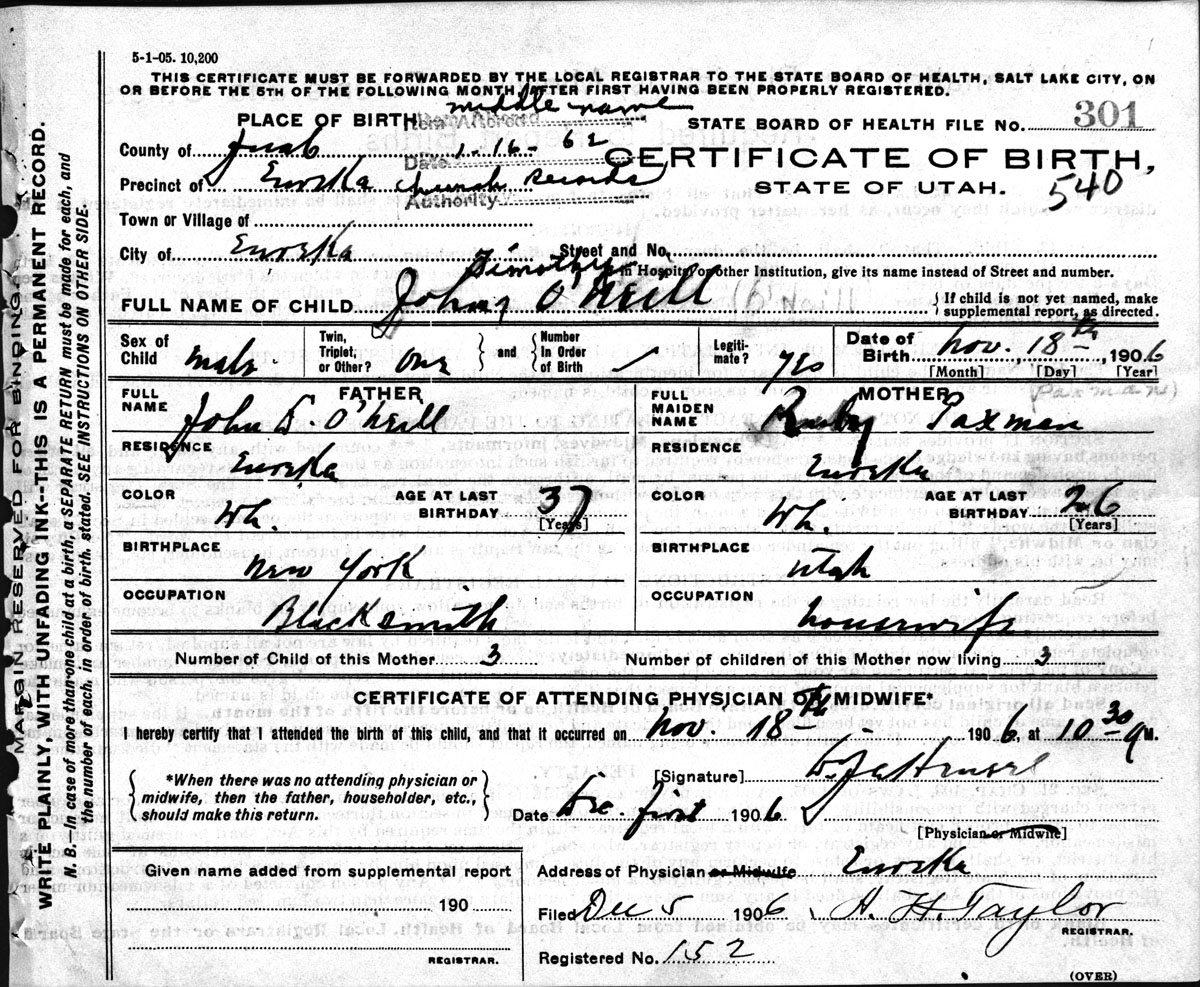 5-1-05. 10,200
THIS CERTIFICATE MUST BE FORWARDED BY THE LOCAL REGISTRAR TO THE STATE BOARD OF HEALTH, SALT LAKE CITY, ON
OR BEFORE THE 5TH OF THE FOLLOWING MONTH, AFTER FIRST HAVING BEEN PROPERLY REGISTERED.
middle name
PLACE OF BIRTH Item Altered
STATE BOARD OF HEALTH FILE NO. 301
County of Juab Date 1-16-62
CERTIFICATE OF BIRTH,
Precinct of Eureka church records
STATE OF UTAH. 540
Authority
Town or Village of
City of Eureka Street and No.
Timothy
In Hospital or other Institution, give its name instead of Street and number.
FULL NAME OF CHILD John O'Neill { If child is not yet named, make supplemental report, as directed.
Sex of Child male Twin, Triplet, or Other? One } and { Number In Order of Birth Legiti- mate? yes Date of Birth Nov. 18th, 1906
[Month] [Day] [Year]
(Paxman)
FATHER MOTHER
FULL NAME John D. O'Neill FULL MAIDEN NAME Ruby Paxman
RESIDENCE Eureka RESIDENCE Eureka
COLOR Wh. AGE AT LAST BIRTHDAY 37 [Years] COLOR Wh AGE AT LAST BIRTHDAY 26 [Years]
BIRTHPLACE New York BIRTHPLACE Utah
OCCUPATION Blacksmith OCCUPATION housewife
Number of Child of this Mother 3 Number of children of this Mother now living 3
CERTIFICATE OF ATTENDING PHYSICIAN OR MIDWIFE*
I hereby certify that I attended the birth of this child, and that it occurred on Nov. 18th 1906, at 10 30 a M.
{ *When there was no attending physician or midwife, then the father, householder, etc., should make this return. }
[Signature]
Date Dec. first 1906
[Physician or Midwife]
Given name added from supplemental report
Address of Physician or Midwife Eureka
190
Filed Dec 5 1906 A. H. Taylor
REGISTRAR.
REGISTRAR.
Registered No. 152
(OVER)
MARGIN RESERVED FOR BINDING.
WRITE PLAINLY, WITH UNFADING INK--THIS IS A PERMANENT RECORD.
N. B.--In case of more than one child at a birth, a SEPARATE RETURN must be made for each, and
the number of each, in order of birth, stated. SEE INSTRUCTIONS ON OTHER SIDE.